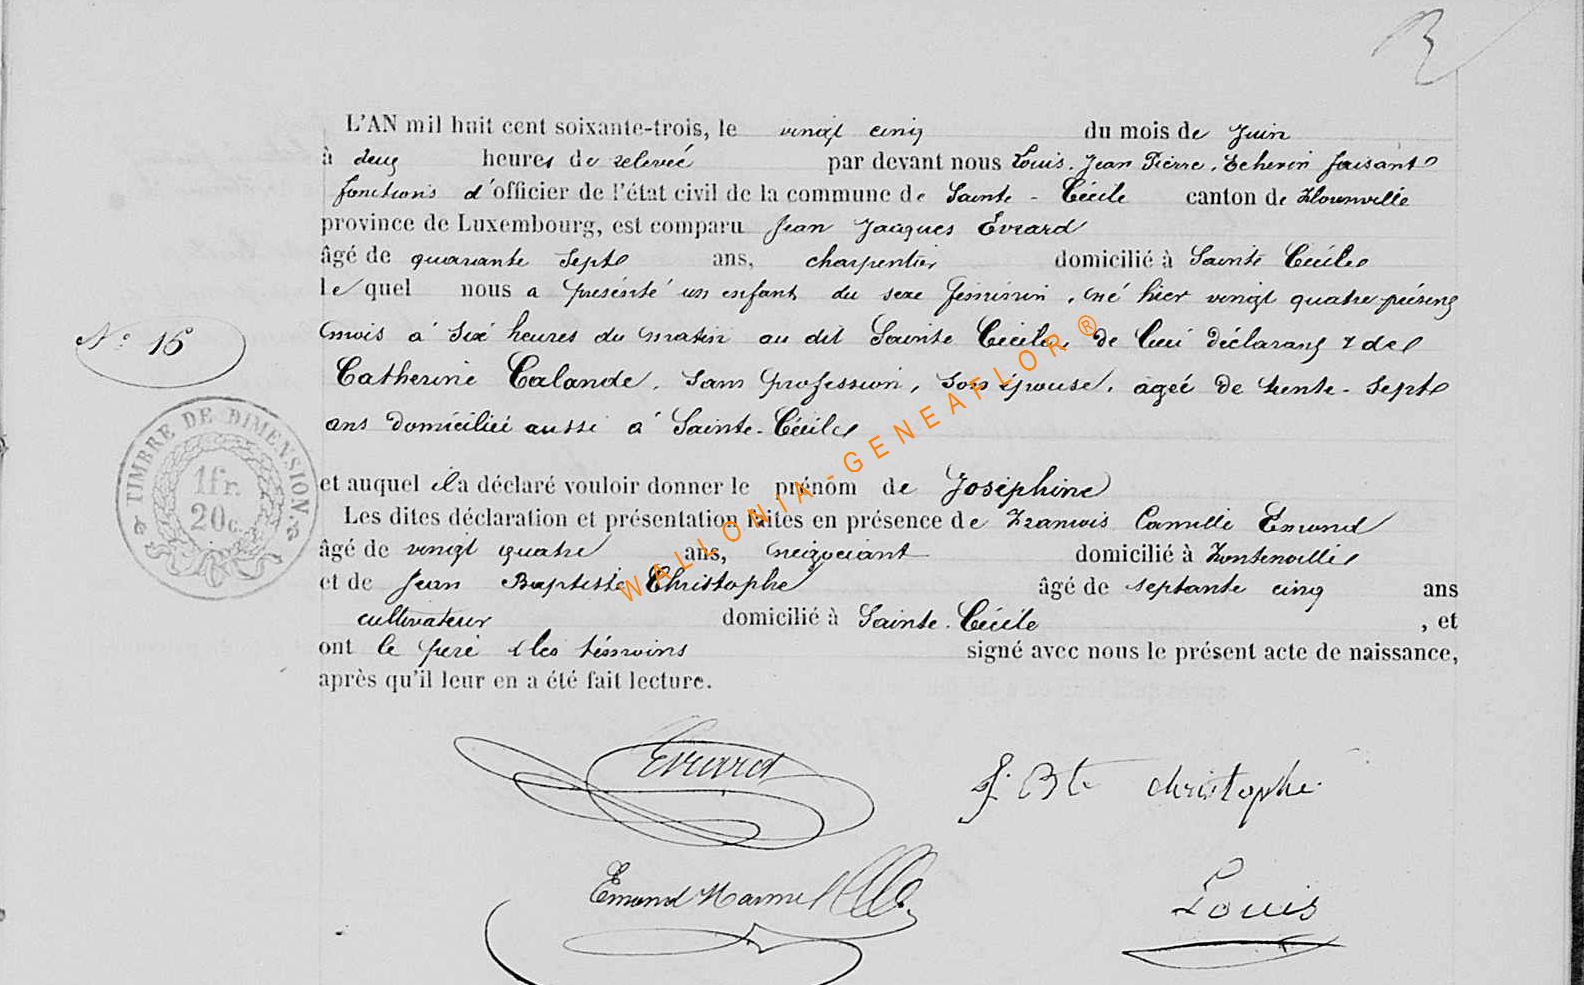 L'AN mil huit cent soixante-trois, le vingt cinq du mois de Juin
à deux heures de relevée par devant nous Louis, Jean Pierre, Echevin faisant
fonctions d'officier de l'état civil de la commune de Sainte-Cécile canton de Florenville
province de Luxembourg, est comparu Jean Jacques Evrard
âgé de quarante sept ans, charpentier domicilié à Sainte Cécile
le quel nous a présenté un enfant du sexe féminin, né hier vingt quatre présent
N° 16
mois à six heures du matin au dit Sainte Cécile, de lui déclarant & de
Catherine Calande, sans profession, son épouse, agée de trente-sept
ans domiciliée aussi à Sainte-Cécile
TIMBRE DE DIMENSION.
1fr.
20c.
et auquel il a déclaré vouloir donner le prénom de Joséphine
Les dites déclaration et présentation faites en présence de François Camille Emond
âgé de vingt quatre ans, négociant domicilié à Fontenoille
et de Jean Baptiste Christophe âgé de septante cinq ans
cultivateur domicilié à Sainte-Cécile , et
ont le père & les témoins signé avec nous le présent acte de naissance,
après qu'il leur en a été fait lecture.
Evrard J. Bte christophe
Emond Louis
WALLONIA-GENEAFLOR®